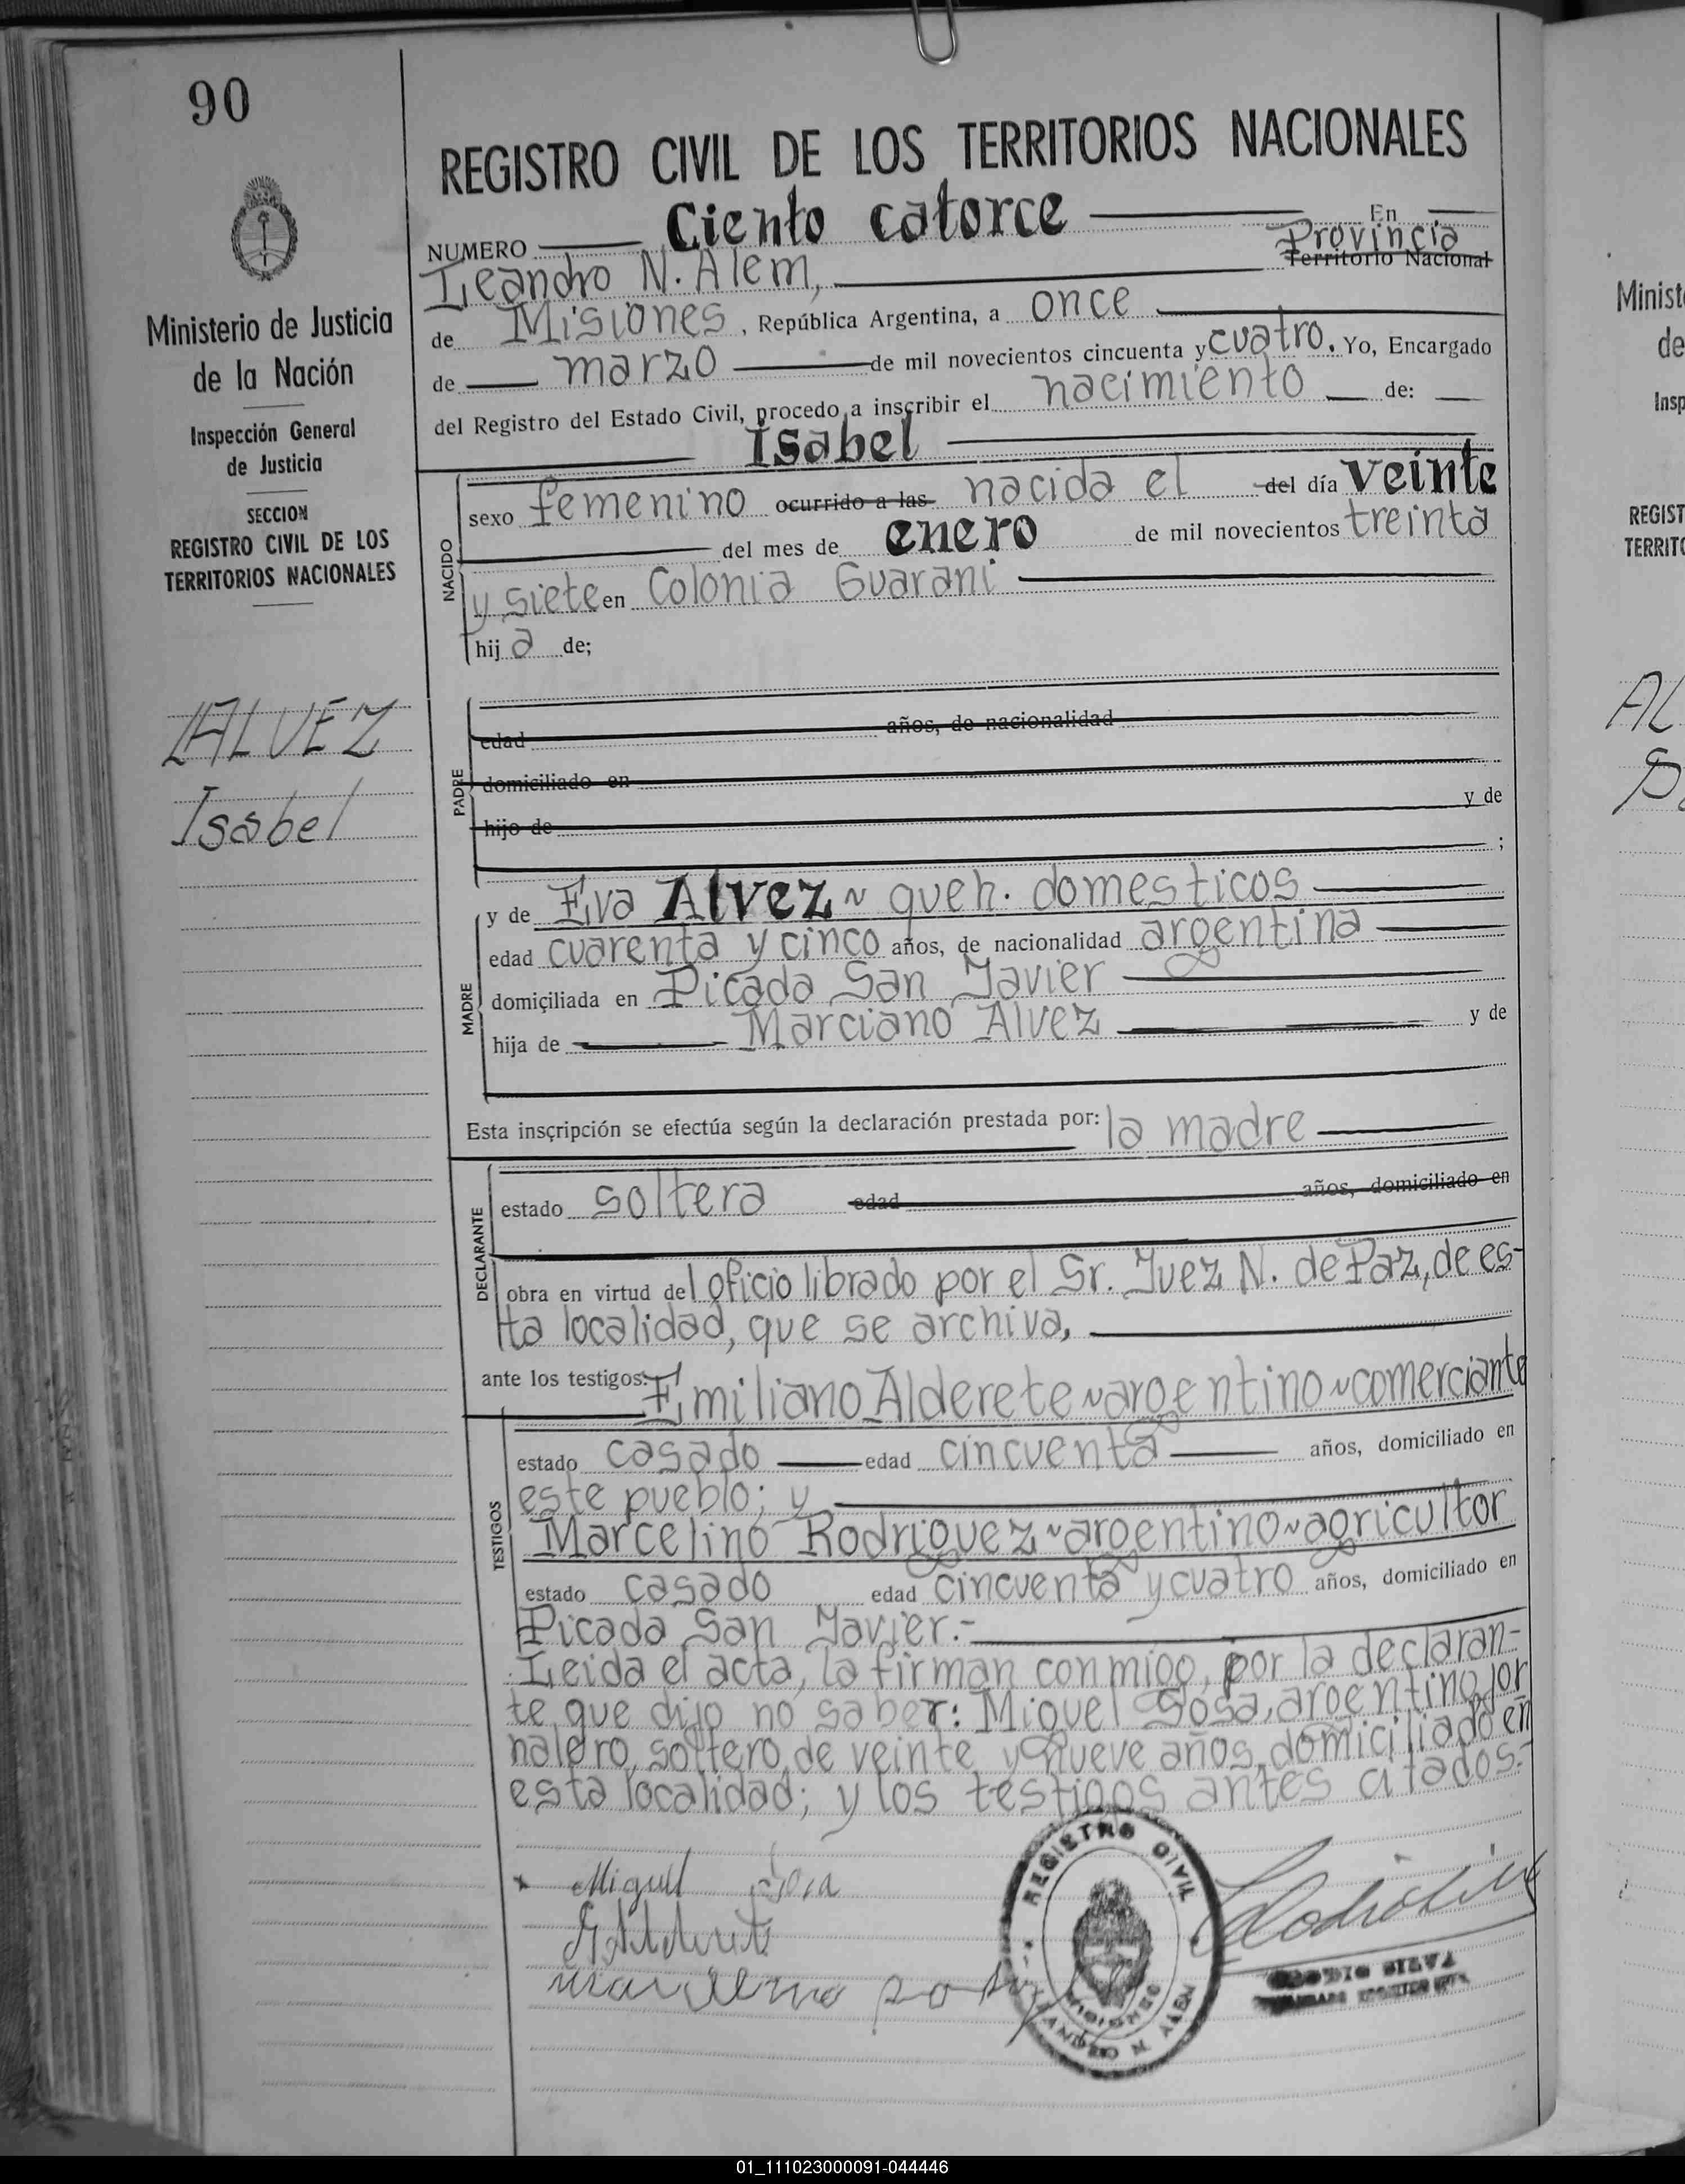 90
REGISTRO CIVIL DE LOS TERRITORIOS NACIONALES
NUMERO Ciento catorce En
Leandro N. Alem, Provincia
Territorio Nacional
de Misiones, República Argentina, a once
de marzo de mil novecientos cincuenta y cuatro. Yo, Encargado
del Registro del Estado Civil, procedo a inscribir el nacimiento de:
Isabel
NACIDO
sexo femenino ocurrido a las nacida el del día veinte
del mes de enero de mil novecientos treinta
y siete en Colonia Guarani
hij a de;
PADRE
edad años, de nacionalidad
domiciliado en
hijo de y de
;
MADRE
y de Eva Alvez ~ queh. domesticos
edad cuarenta y cinco años, de nacionalidad argentina
domiciliada en Picada San Javier
hija de Marciano Alvez y de
Esta inscripción se efectúa según la declaración prestada por: la madre
DECLARANTE
estado soltera edad años, domiciliado en
obra en virtud del oficio librado por el Sr. Juez N. de Paz, de es-
ta localidad, que se archiva,
ante los testigos: Emiliano Alderete ~ argentino ~ comerciante
TESTIGOS
estado casado edad cincuenta años, domiciliado en
este pueblo; y
Marcelino Rodriguez ~ argentino ~ agricultor
estado casado edad cincuenta y cuatro años, domiciliado en
Picada San Javier.-
Leida el acta, la firman conmigo, por la declaran-
te que dijo no saber: Miguel Sosa, argentino, jor
nalero, soltero, de veinte y nueve años, domiciliado en
esta localidad; y los testigos antes citados.-
Miguel Sosa
REGISTRO CIVIL
MISIONES
LEANDRO N. ALEM
SILVA
Ministerio de Justicia
de la Nación
Inspección General
de Justicia
SECCION
REGISTRO CIVIL DE LOS
TERRITORIOS NACIONALES
ALVEZ
Isabel
Minist
de
Insp
REGIST
TERRITO
AL
01_111023000091-044446